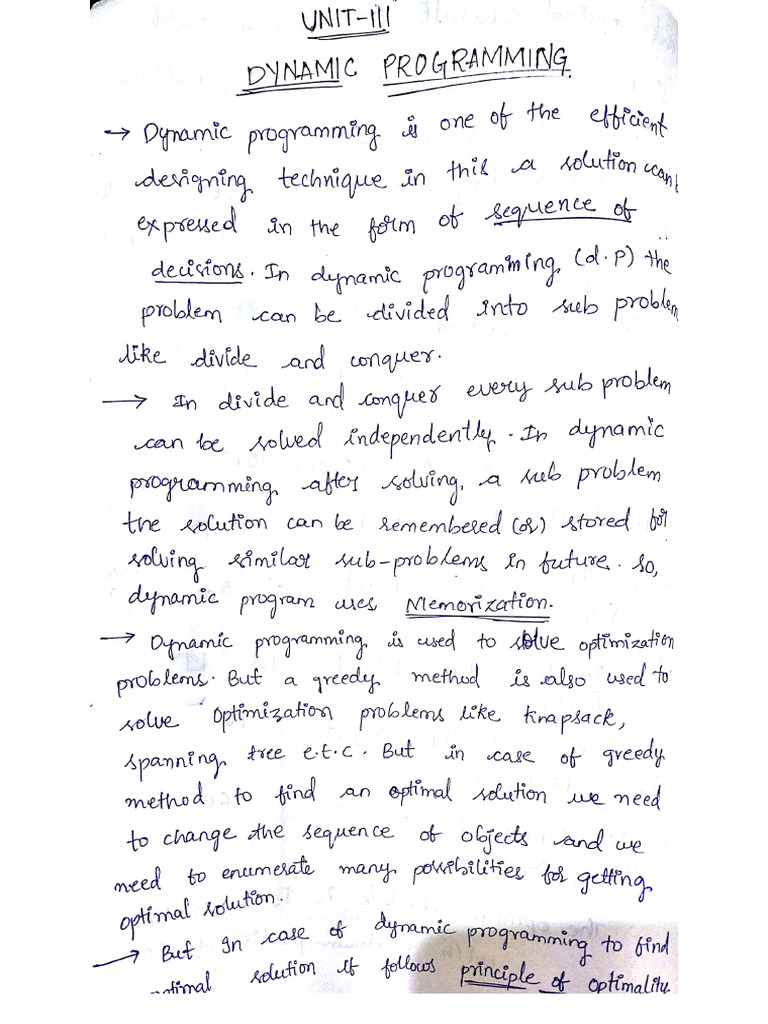 UNIT-III
DYNAMIC PROGRAMMING.
→ Dynamic programming is one of the efficient
designing technique in this a solution can
expressed in the form of sequence of
decisions. In dynamic programming (d.p) the
problem can be divided into sub problem
like divide and conquer.
→ In divide and conquer every sub problem
can be solved independently. In dynamic
programming after solving, a sub problem
the solution can be remembered (or) stored for
solving similar sub-problems in future. so,
dynamic program uses Memorization.
→ Dynamic programming is used to solve optimization
problems. But a greedy method is also used to
solve optimization problems like knapsack,
spanning tree e.t.c. But in case of greedy
method to find an optimal solution we need
to change the sequence of objects and we
need to enumerate many possibilities for getting
optimal solution.
→ But In case of dynamic programming to find
optimal solution it follows principle of optimality